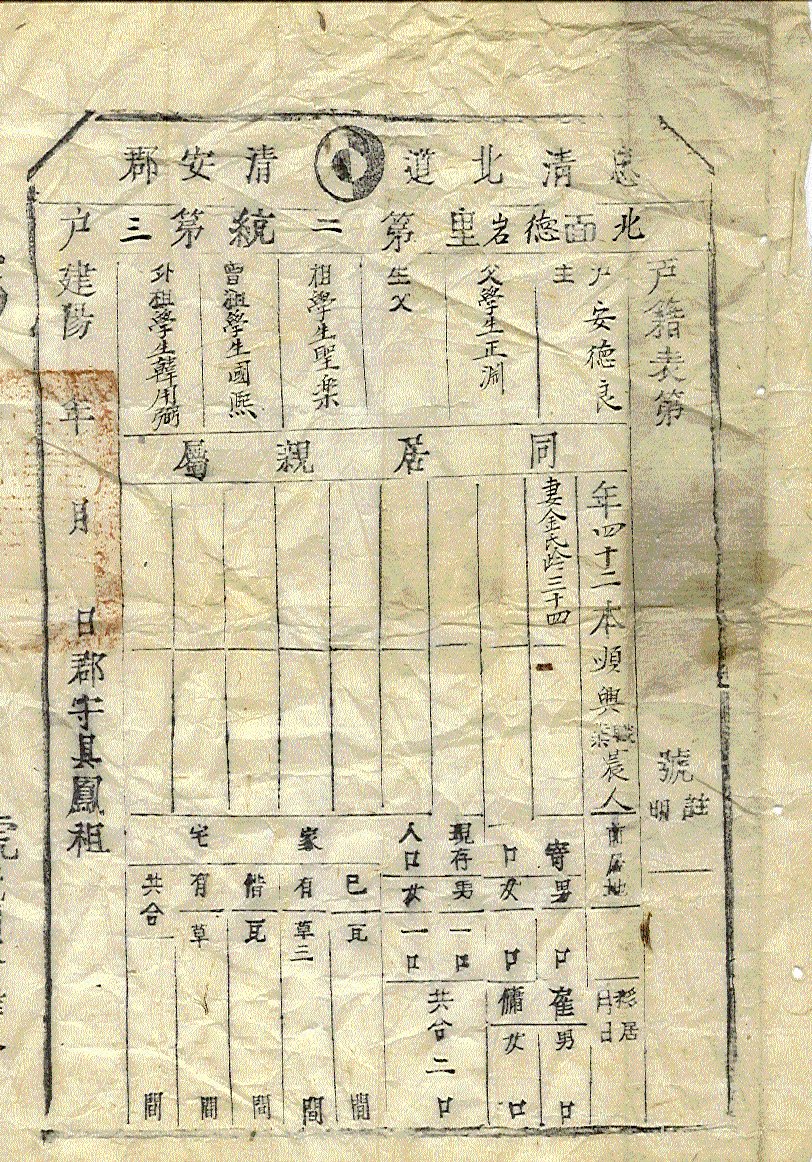 忠清北道 清安郡
北面德岩里 第二統 第三戶
戶籍表第 號
註明
戶主 安德良
年四十二 本順興 職業農人
前居地
移居 月 日
父學生正淵
生父
祖學生聖樂
曾祖學生國熙
外祖學生韓用弼
同居親屬
妻金氏齡三十四
寄口 男 口
女 口
雇傭 男 口
女 口
現存人口 男 一口
女 一口
共合二口
家宅
己有 瓦 間
草三 間
借有 瓦 間
草 間
共合 間
建陽 年 月 日 郡守具鳳祖